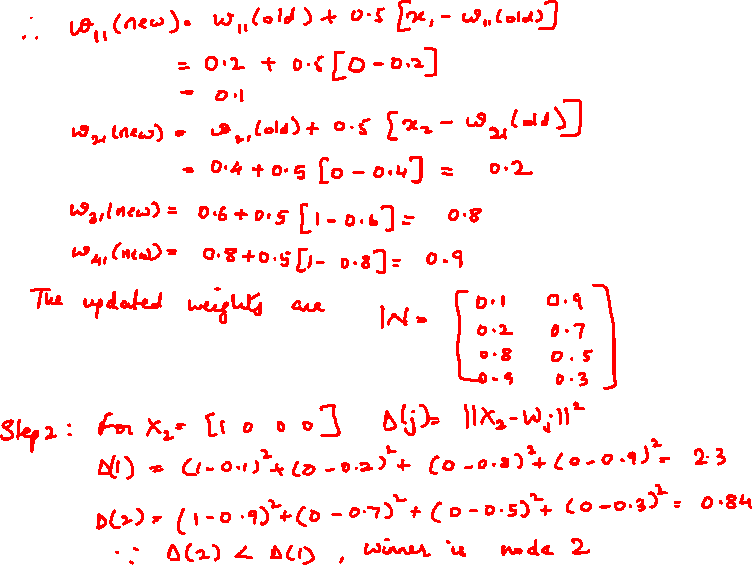 ∴ w₁₁(new) = w₁₁(old) + 0.5 [x₁ - w₁₁(old)]
= 0.2 + 0.5 [0 - 0.2]
= 0.1
w₂₁(new) = w₂₁(old) + 0.5 [x₂ - w₂₁(old)]
= 0.4 + 0.5 [0 - 0.4] = 0.2
w₃₁(new) = 0.6 + 0.5 [1 - 0.6] = 0.8
w₄₁(new) = 0.8 + 0.5 [1 - 0.8] = 0.9
The updated weights are W = [0.1 0.9
0.2 0.7
0.8 0.5
0.9 0.3]
Step 2: for X₂ = [1 0 0 0] D(j) = ||X₂ - Wⱼ||²
D(1) = (1-0.1)² + (0-0.2)² + (0-0.8)² + (0-0.9)² = 2.3
D(2) = (1-0.9)² + (0-0.7)² + (0-0.5)² + (0-0.3)² = 0.84
∵ D(2) < D(1), winner is node 2